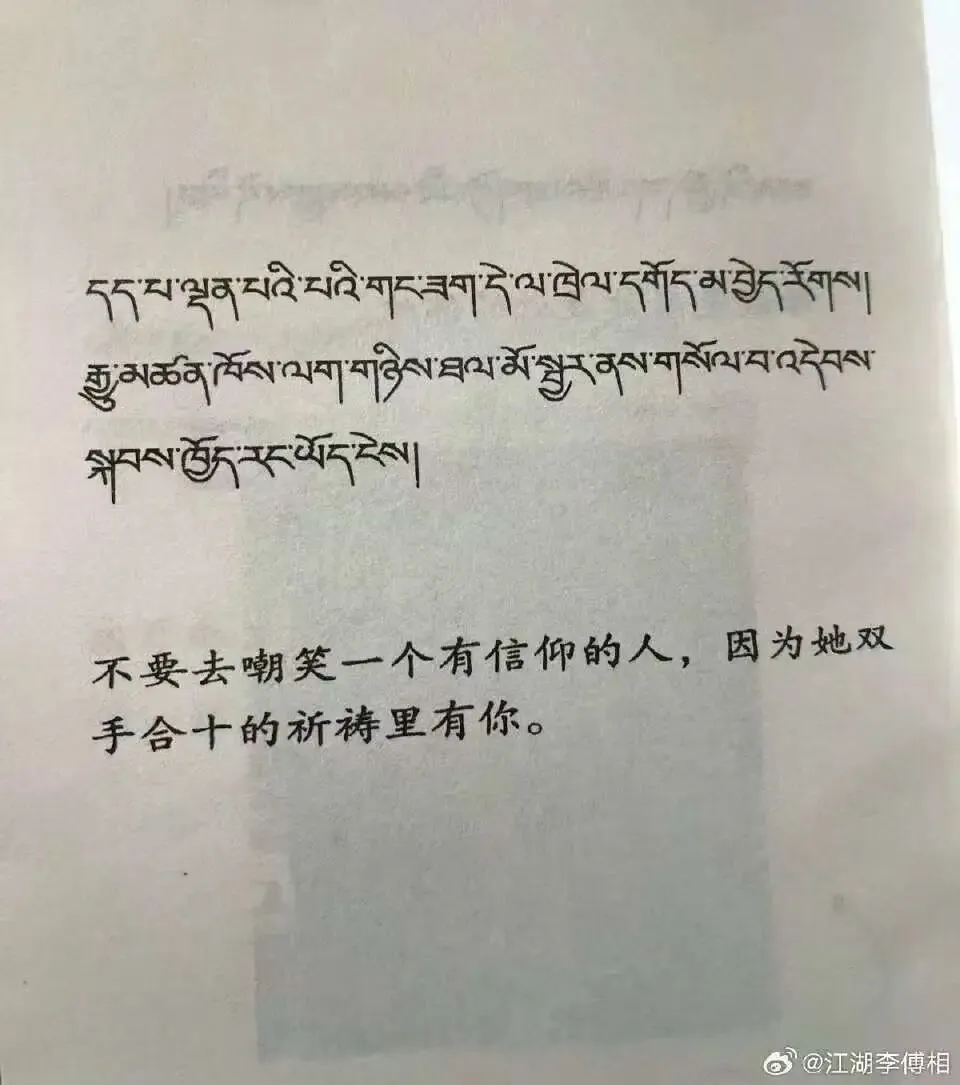 དད་པ་ལྡན་པའི་པའི་གང་ཟག་དེ་ལ་ཁྲེལ་དགོད་མ་བྱེད་རོགས།
རྒྱུ་མཚན་ཁོས་ལག་གཉིས་ཐལ་མོ་སྦྱར་ནས་གསོལ་བ་འདེབས་
སྐབས་ཁྱོད་རང་ཡོད་ངེས།
不要去嘲笑一个有信仰的人，因为她双
手合十的祈祷里有你。
@江湖李傅相